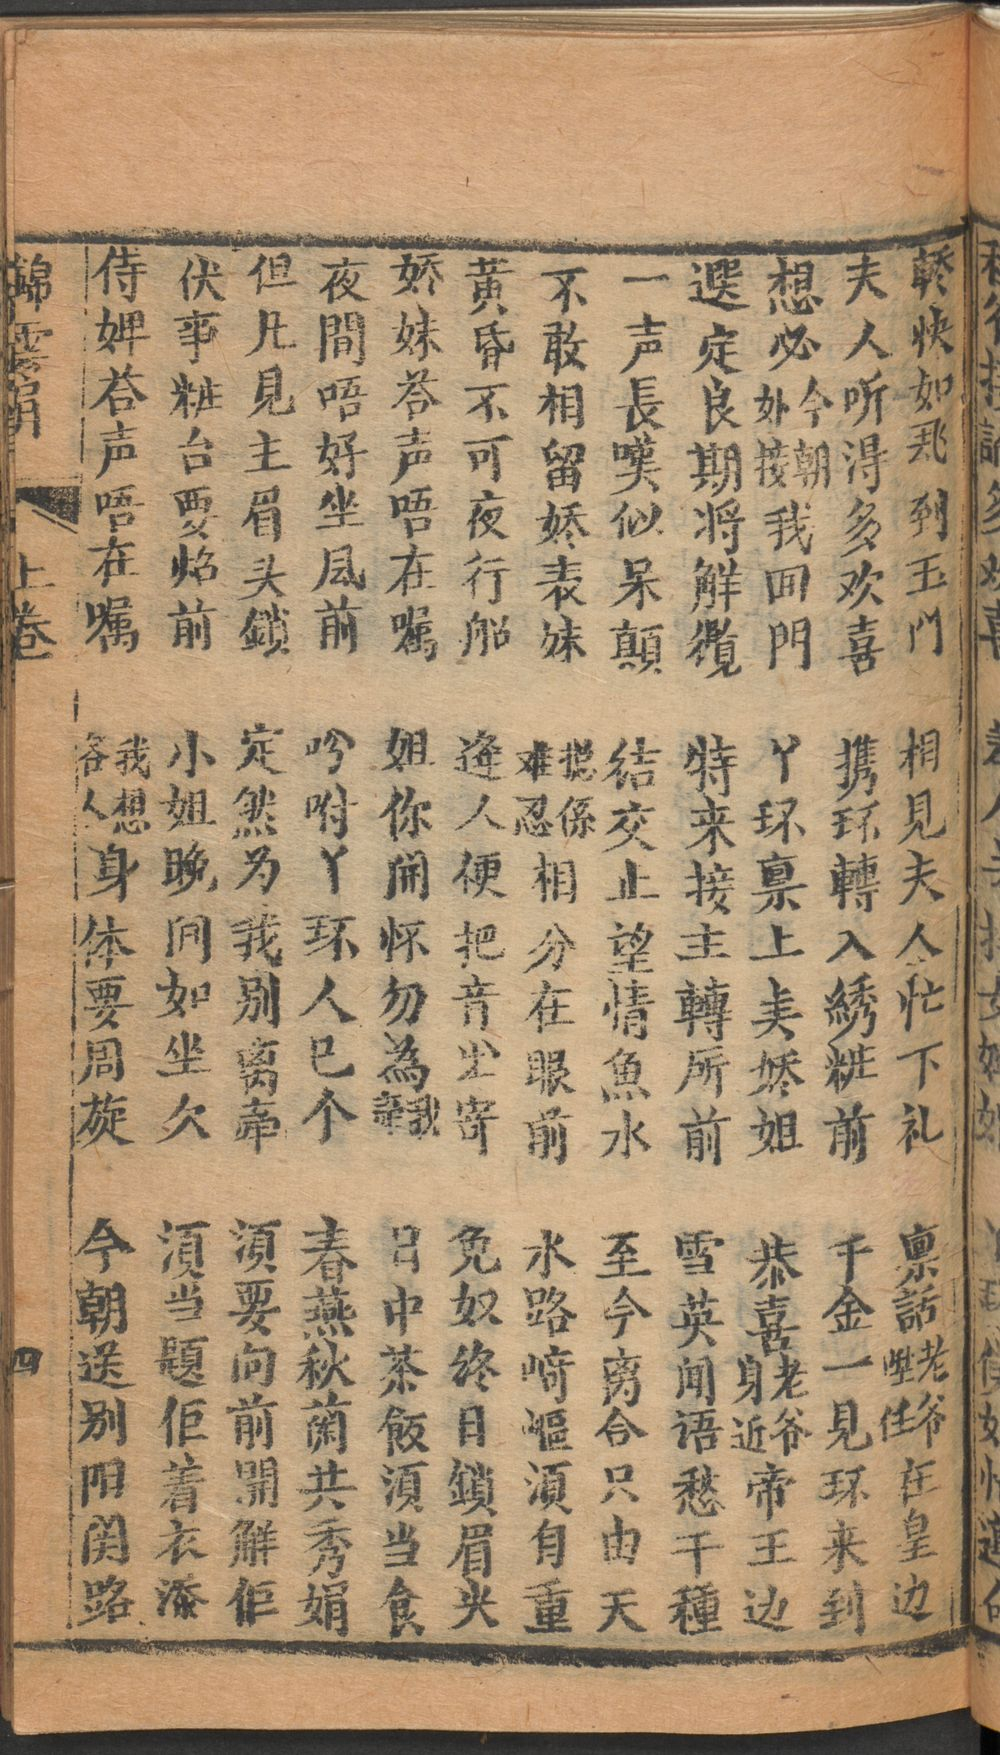 轿快如飛到玉門　相見夫人忙下礼　禀話老爷陞任在皇边
夫人听淂多欢喜　携环轉入綉粧前　千金一見环来到
想必今朝外接我回門　丫环禀上美娇姐　恭喜老爷身近帝王边
選定良期将解纜　特来接主轉所前　雪英闻语愁千種
一声長嘆似呆顛　结交止望情魚水　至今离合只由天
不敢相留娇表妹　捴係难忍相分在眼前　水路崎嶇須自重
黃昏不可夜行船　逢人便把音书寄　免奴终日鎖眉尖
娇妹答声唔在嘱　姐你開怀勿為我牵　日中茶飯須当食
夜間唔好坐風前　吟咐丫环人已个　春燕秋蘭共秀娟
但凡見主眉头鎖　定然为我别离牵　須要向前開解佢
伏事粧台要焰前　小姐晚间如坐久　須当題佢着衣添
侍婢答声唔在嘱　我想各人身体要周旋　今朝送别阳関路
錦雲娟　上卷　四